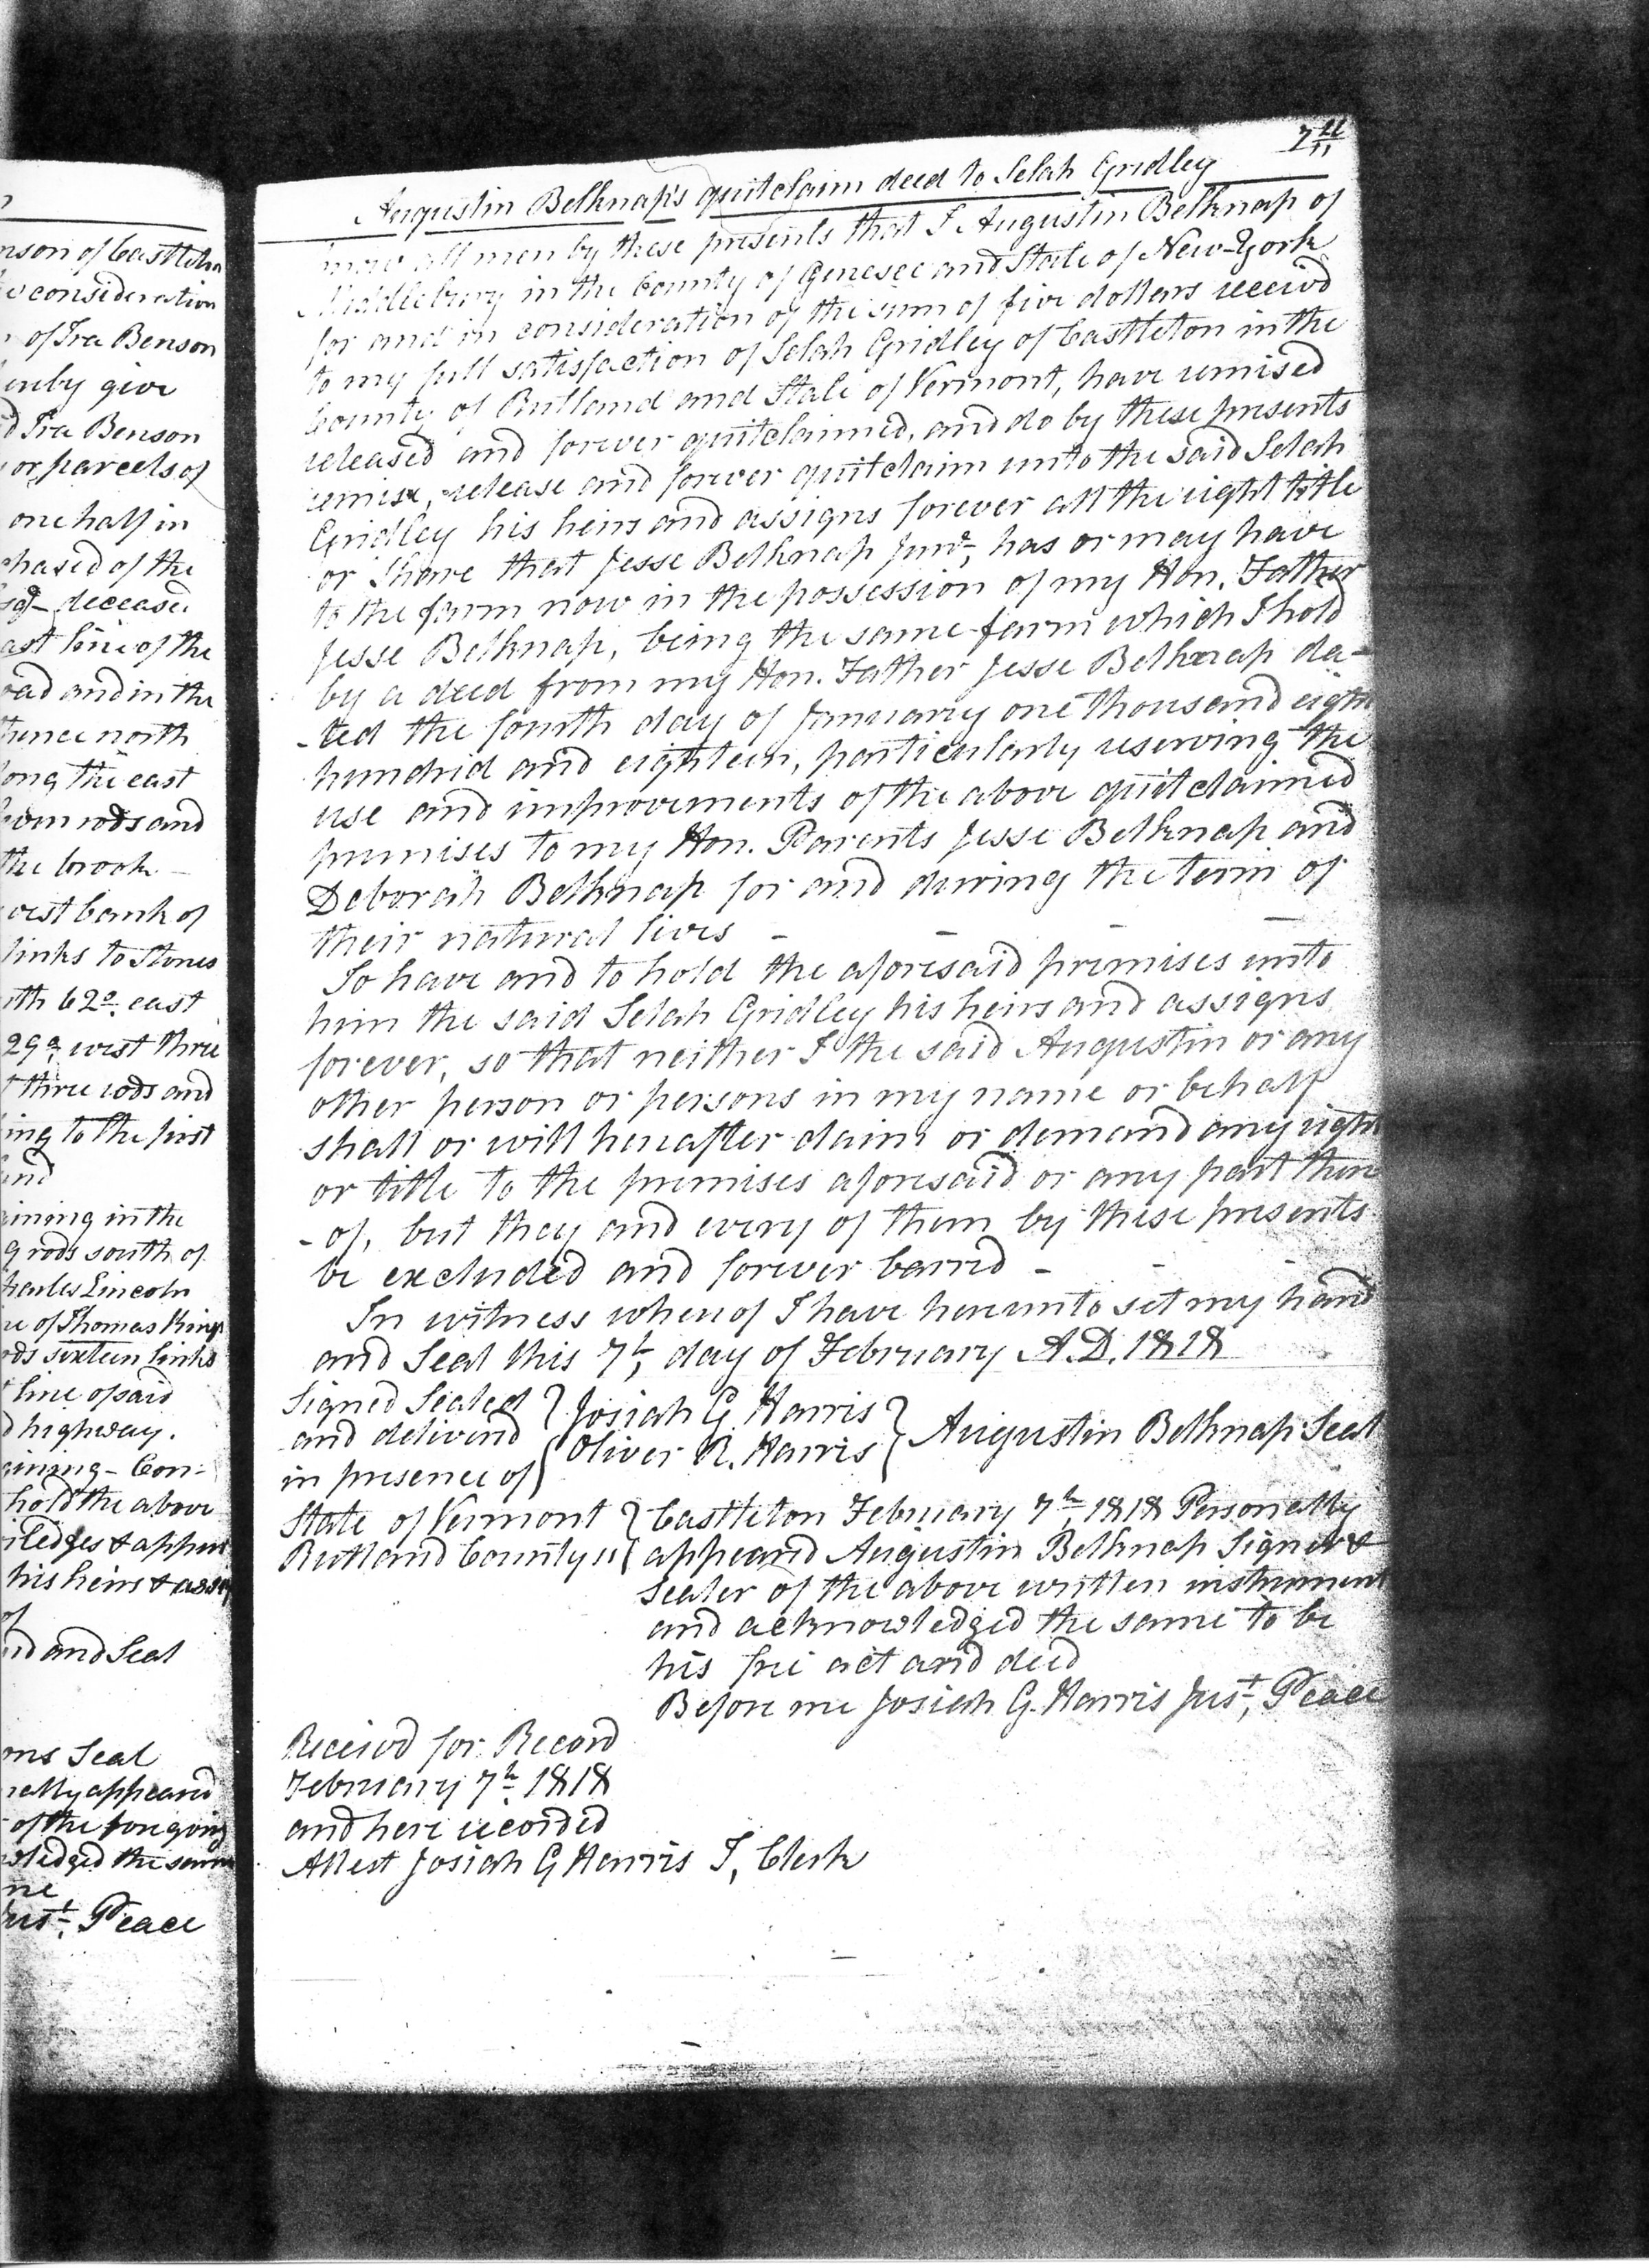 nson of Castleton
consideration
of Ira Benson
hereby give
Ira Benson
or parcels of
one half in
chased of the
deceased
east line of the
road and in the
thence north
long the east
rods and
the brook
west bank of
links to Stones
62° east
29° west three
three rods and
ing to the first
ining in the
rods south of
Charles Lincoln
of Thomas King
rods sixteen links
line of said
highway.
Con-
hold the above
& appur
his heirs &
of
and Seal
ons Seal
nally appeared
of the foregoing
the same
me
Just, Peace
Augustin Belknap's quitclaim deed to Selah Gridley
know all men by these presents that I Augustin Belknap of
Middlebury in the County of Genesee and State of New-York
for and in consideration of the sum of five dollars receivd
to my full satisfaction of Selah Gridley of Castleton in the
County of Rutland and State of Vermont, have remised
released and forever quitclaimed, and do by these presents
remise, release and forever quitclaim unto the said Selah
Gridley his heirs and assigns forever all the right title
or Share that Jesse Belknap Junr, has or may have
to the farm now in the possession of my Hon. Father
Jesse Belknap, being the same farm which I hold
by a deed from my Hon. Father Jesse Belknap da-
-ted the fourth day of January one thousand eight
hundrid and eighteen, particularly reserving the
use and improvements of the above quitclaimed
premises to my Hon. Parents Jesse Belknap and
Deborah Belknap for and during the term of
their natural lives -
To have and to hold the aforesaid premises unto
him the said Selah Gridley his heirs and assigns
forever, so that neither I the said Augustin or any
other person or persons in my name or behalf
shall or will hereafter claim or demand any right
or title to the premises aforesaid or any part there
-of, but they and every of them by these presents
be excluded and forever barred -
In witness whereof I have hereunto set my hand
and Seal this 7h, day of February A.D. 1818
Signed Sealed } Josiah G. Harris }
and deliverd { Oliver R. Harris { Augustin Belknap Seal
in presence of
State of Vermont } Castleton February 7h, 1818 Personally
Rutland County ss { appeard Augustin Belknap Signer &
Sealer of the above written instrument
and acknowledged the same to be
his free act and deed
Before me Josiah G. Harris Just, Peace
Receivd for Record
February 7h. 1818
and here recorded
Attest Josiah G Harris T, Clerk